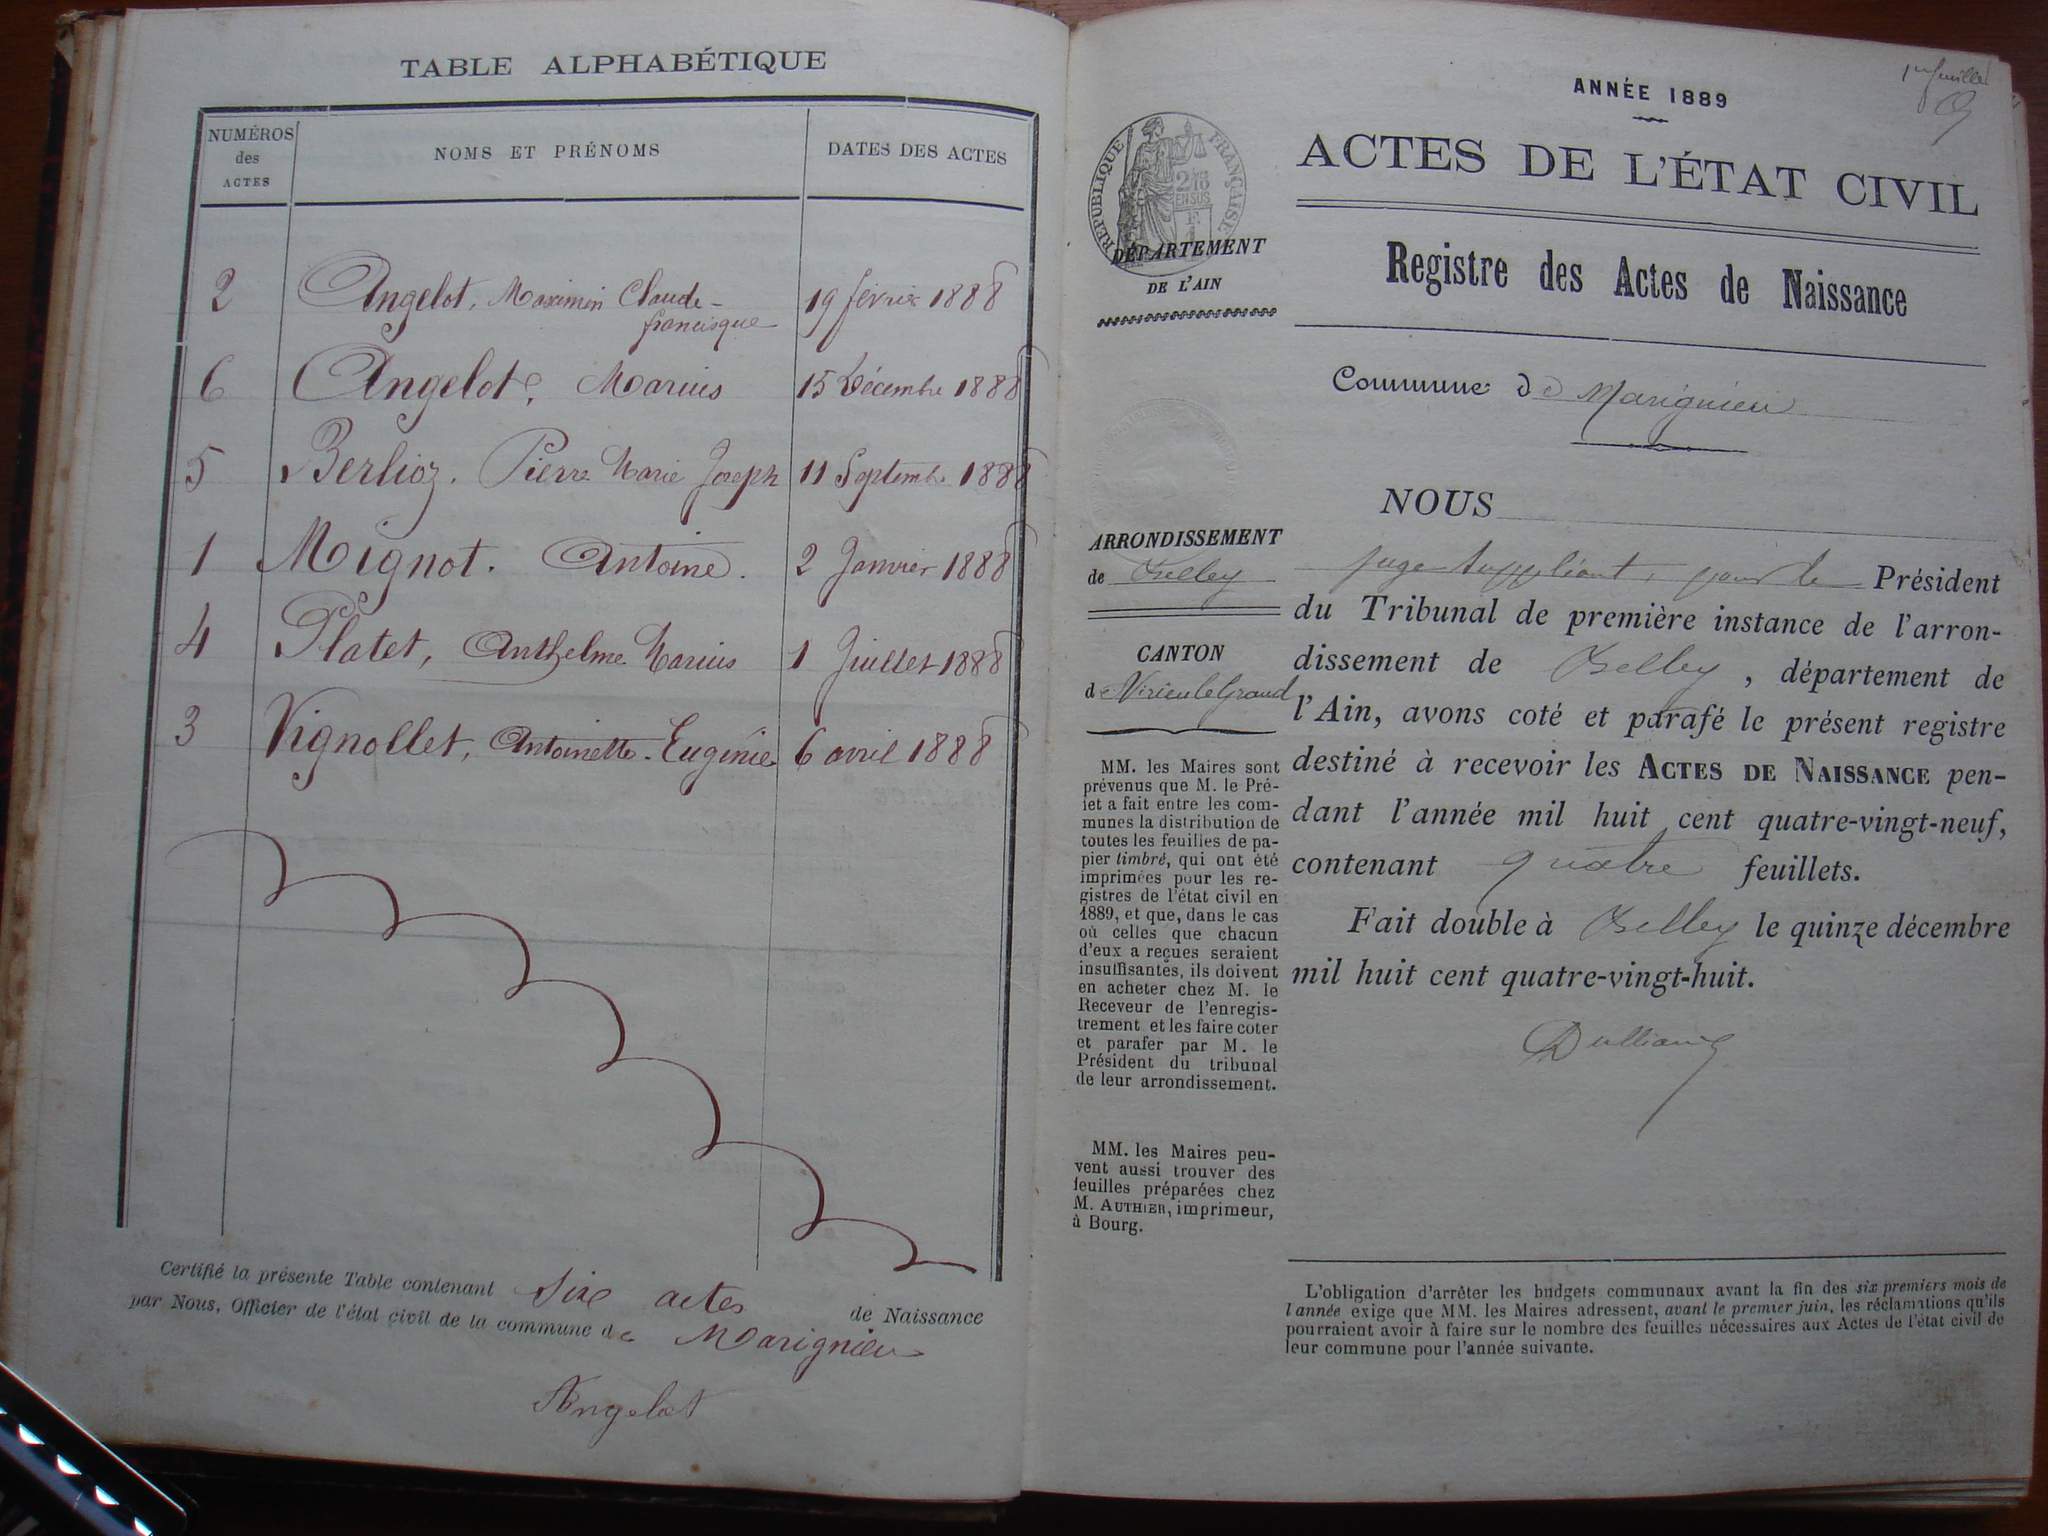 TABLE ALPHABÉTIQUE
NUMÉROS
des
ACTES
NOMS ET PRÉNOMS
DATES DES ACTES
2 Angelot, Maximin Claude- 19 février 1888
francisque
6 Angelot, Marius 15 Décembre 1888
5 Berlioz. Pierre Marie Joseph 11 Septembre 1888
1 Mignot. Antoine. 2 Janvier 1888
4 Platet, Anthelme Marius 1 Juillet 1888
3 Vignollet, Antoinette-Eugénie 6 avril 1888
Certifié la présente Table contenant Six actes de Naissance
par Nous, Officier de l'état civil de la commune de Marignieu
Angelot
1er feuillet
ANNÉE 1889
ACTES DE L'ÉTAT CIVIL
RÉPUBLIQUE FRANÇAISE
2/10
EN SUS
DÉPARTEMENT
DE L'AIN
Registre des Actes de Naissance
Commune de Marignieu
ARRONDISSEMENT
de Belley
CANTON
de Virieu le Grand
MM. les Maires sont
prévenus que M. le Pré-
fet a fait entre les com-
munes la distribution de
toutes les feuilles de pa-
pier timbré, qui ont été
imprimées pour les re-
gistres de l'état civil en
1889, et que, dans le cas
où celles que chacun
d'eux a reçues seraient
insuffisantes, ils doivent
en acheter chez M. le
Receveur de l'enregis-
trement et les faire coter
et parafer par M. le
Président du tribunal
de leur arrondissement.
MM. les Maires peu-
vent aussi trouver des
feuilles préparées chez
M. AUTHIER, imprimeur,
à Bourg.
NOUS
juge suppléant, pour le Président
du Tribunal de première instance de l'arron-
dissement de Belley, département de
l'Ain, avons coté et parafé le présent registre
destiné à recevoir les ACTES DE NAISSANCE pen-
dant l'année mil huit cent quatre-vingt-neuf,
contenant quatre feuillets.
Fait double à Belley le quinze décembre
mil huit cent quatre-vingt-huit.
L'obligation d'arrêter les budgets communaux avant la fin des six premiers mois de
l'année exige que MM. les Maires adressent, avant le premier juin, les réclamations qu'ils
pourraient avoir à faire sur le nombre des feuilles nécessaires aux Actes de l'état civil de
leur commune pour l'année suivante.